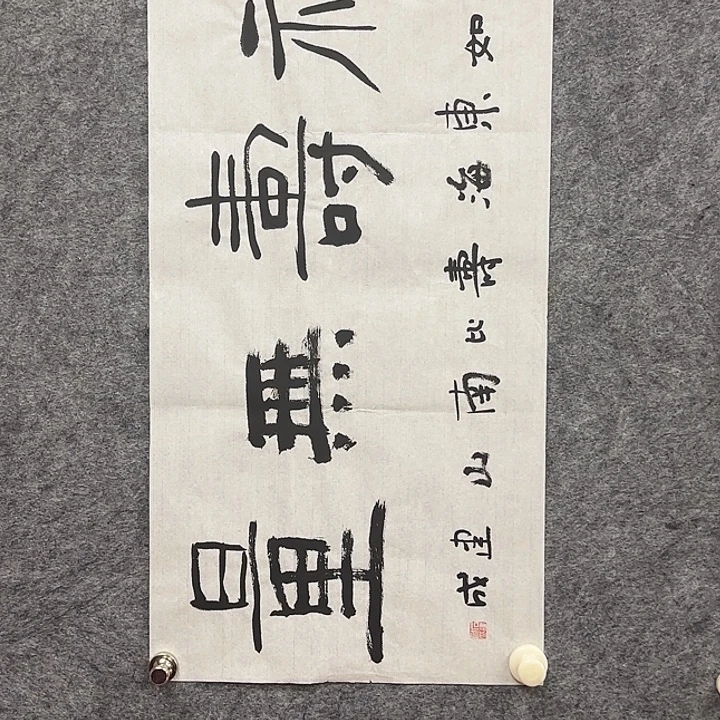 壽無量
如東海壽比南山
成